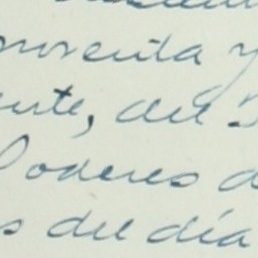 noventa y
ente, del
Poderes d
s del día